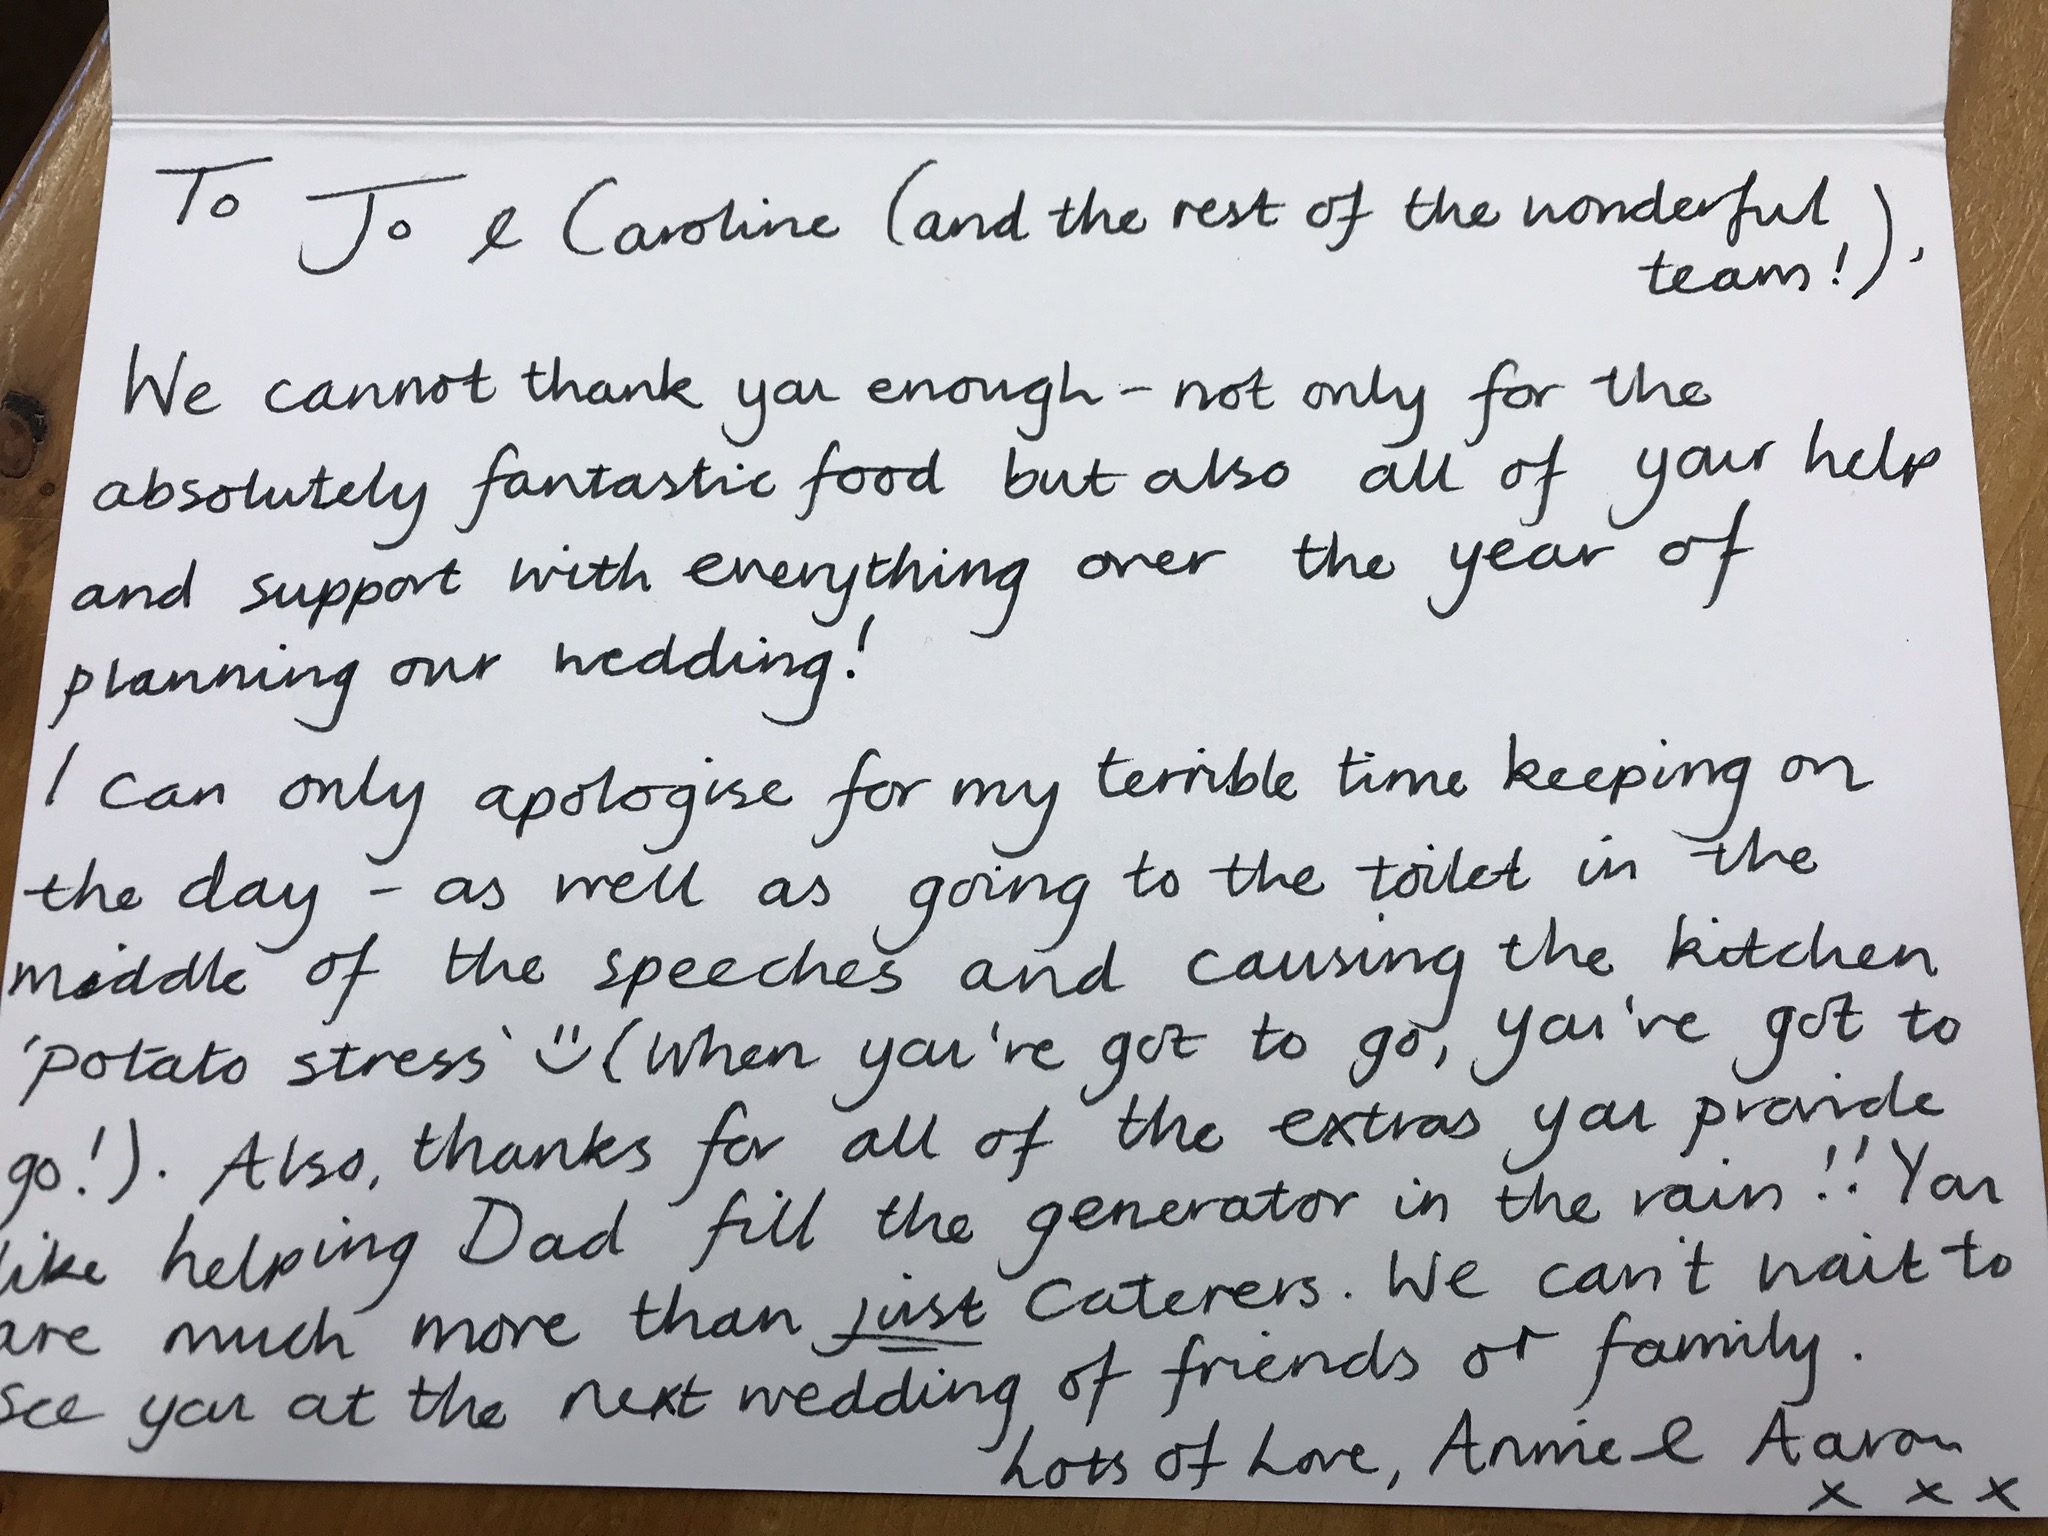 To Jo & Caroline (and the rest of the wonderful
team!),
We cannot thank you enough - not only for the
absolutely fantastic food but also all of your help
and support with everything over the year of
planning our wedding!
I can only apologise for my terrible time keeping on
the day - as well as going to the toilet in the
middle of the speeches and causing the kitchen
'potato stress' :) (When you've got to go, you've got to
go!). Also, thanks for all of the extras you provide
like helping Dad fill the generator in the rain!! You
are much more than just caterers. We can't wait to
see you at the next wedding of friends or family.
Lots of Love, Annie & Aaron
x x x